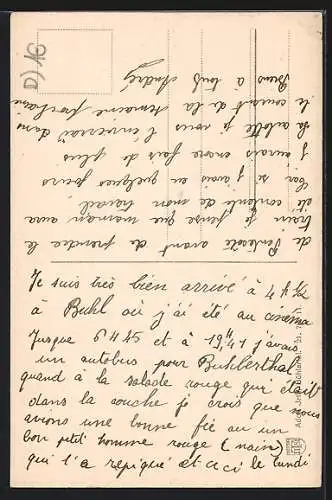 Je suis très bien arrivé à 4 H 1/2
à Buhl où j'ai été au cinéma
Jusque 6 H 45 et à 19 H 41 j'avais
un autobus pour Buhlerthal
quand à la salade rouge qui était
dans la couche je crois que nous
avions une bonne fée ou un
bon petit homme rouge (nain)
qui l'a repiqué et ceci le lundi
de Pentecôte avant de prendre le
train je pense que maman aura
été contente de mon travail
Car si j'avais en quelques jours
j'aurais encore fais de plus
La culotte je vous l'enverrai dans
le courant de la semaine prochaine
Bons à tous André
D) 16